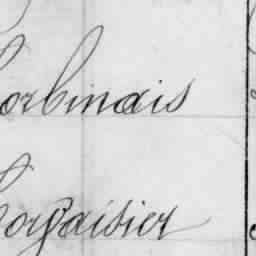 Corbinais
Corvaisier